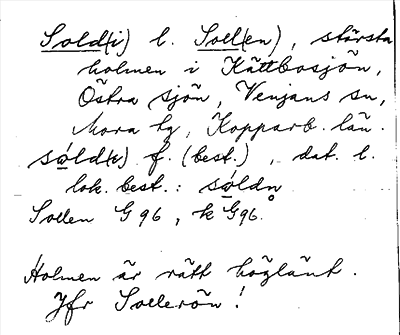 Sold(i) l. Soll(en), största
holmen i Kättbosjön,
Östra sjön, Venjans sn,
Mora tg, Kopparb. län.
sǫ́ld(e) f. (best.), dat. l.
lok. best.: sǫ́ldn̥
Sollen G96, k G96.
Holmen är rätt höglänt.
Jfr Sollerön!